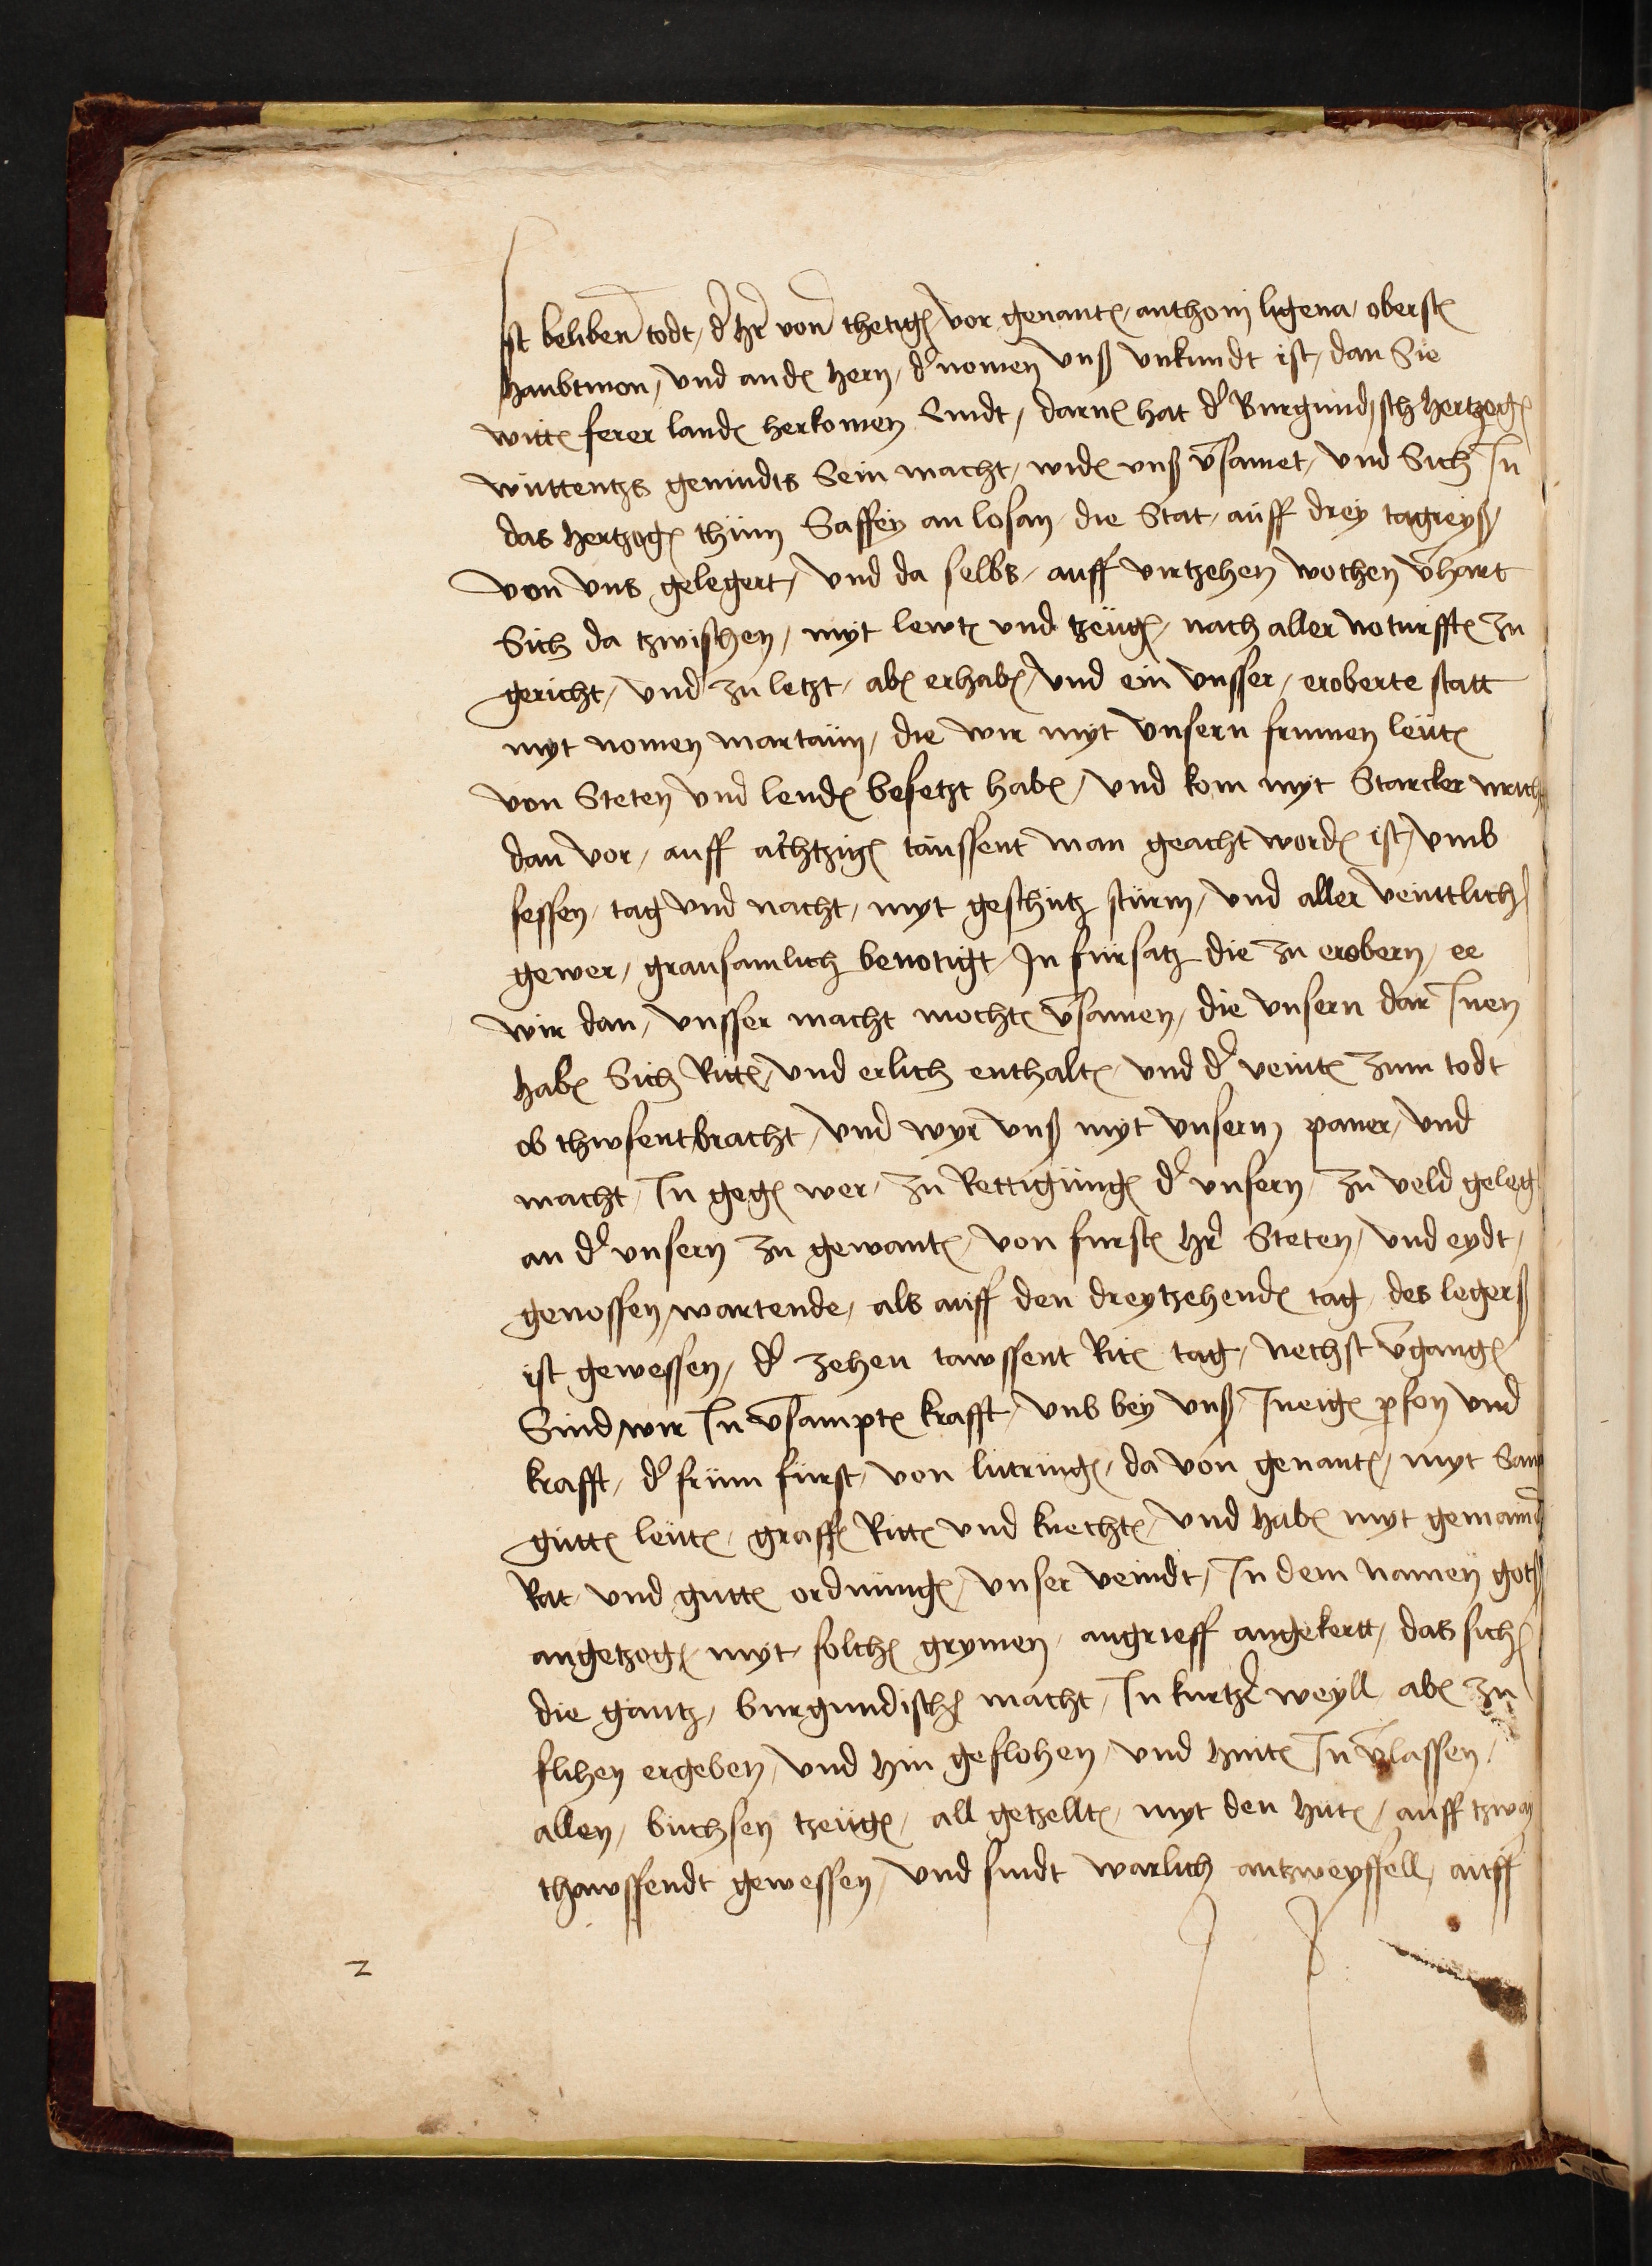 Ist beliben todt, d' hr von thetigē, vor genantē, anthoni ligena, oberstē
haubtmon, vnd andē hern, d' nomen vnß vnkundt ist, dan Sie
wittē ferer landē herkomen Sindt, darnē hat d' Burgundisch hertzogē
wüttentzs gemüdts Sein macht, widē vnß v̄samet, vnd Sich In
das hertzogē thüm Saffey an losan, die Stat, auff drey tagreyß
von vns gelegert, vnd da selbs, auff virtzehen wochen v̄hart
Sich da tzwischen, myt lewtē vnd tzeügē, nach aller noturfftē zu
gericht, vnd zu letzt, abē erhabē, vnd ein vnsser, eroberte statt
myt nomen martaün, die wir myt vnsern frumen leütē
von Steten vnd lendē besetzt habē, vnd kom myt Starcker
dan vor, auff achtzigē taussent man geacht wordē ist, vmb
sessen, tag vnd nacht, myt geschütz stürm, vnd aller veinttlich
gewer, grausamlich benotigt, In fürsatz die zu erobern, ee
wir dan, vnsser macht mochtē v̄samen, die vnsern dar Inen
habē Sich Rittē, vnd erlich enthaltē, vnd d' veintē zum todt
ob thwsent bracht, vnd wyr vnß myt vnsern paner, vnd
macht, In gegē wer, zu Rettigüngē d' vnsern, zu veld geleg
an d' vnsern zu gewantē, von furstē hr Steten, vnd eydt,
genossen, wartende, als auff den dreytzehendē tag, des legerß
ist gewessen, d' zehen tawssent Ritē tag, nechst v̄gangē
Sind wir In v̄samptē krafft, vnd bey vnß, In eigē pson vnd
krafft, d' früm fürst, von lutringē, da von genantē, myt Samp
guttē leütē, graffē Rittē vnd knechtē, vnd habē myt gemainē
Rat, vnd guttē ordnüngē, vnser veindt, In dem namen gotß
angetzogē, myt solchē grymen, angrieff angekertt, das sich
die gantz, burgundisch macht, In kurtzē weyll, abē zu
flihen ergeben, vnd hin geflohen, vnd hintē In v̄lassen,
allen, büchsen tzeügē, all getzelltē, myt den hütē, auff tzway
thawssendt gewessen, vnd sindt warlich antzweyffell, auff
2